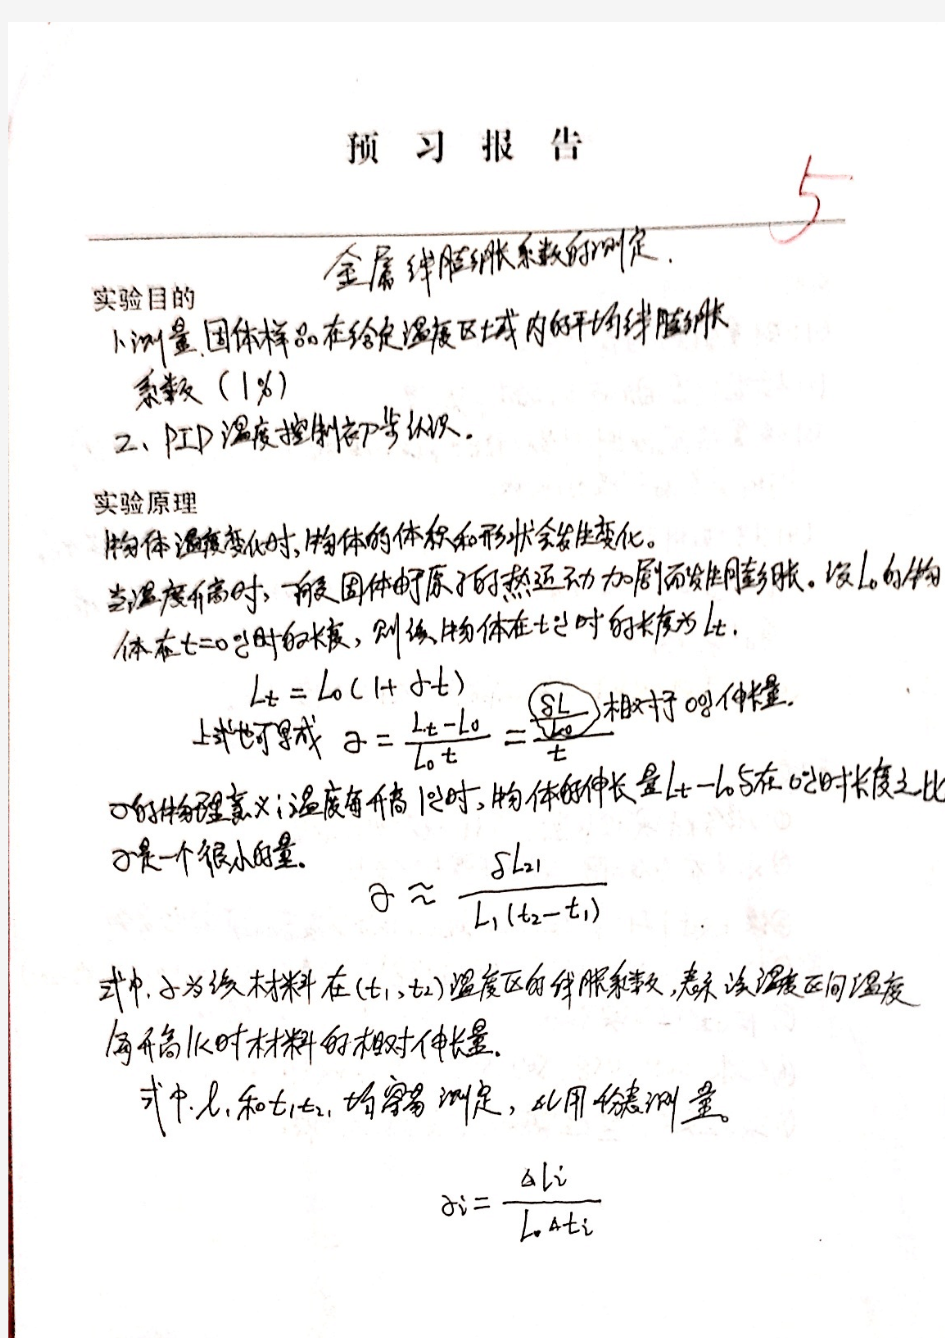 预 习 报 告
5
金属线膨胀系数的测定.
实验目的
1、测量固体样品在给定温度区域内的平均线膨胀
系数(1%)
2、PID温度控制初步认识。
实验原理
物体温度变化时,物体的体积和形状会发生变化。
当温度升高时,一般固体由于原子的热运动加剧而发生膨胀。设L₀的物
体在t=0℃时的长度,则该物体在t℃时的长度为Lt.
Lt = L₀(1+ ∂t)
上式也可写成 ∂ = (Lt-L₀)/(L₀t) = (δL/L₀)/t 相对于0℃伸长量.
∂的物理意义:温度每升高1℃时,物体的伸长量Lt-L₀与在0℃时长度之比
∂是一个很小的量。
∂ ≈ δL₂₁/(L₁(t₂-t₁))
式中,∂为该材料在(t₁,t₂)温度区的线胀系数,表示该温度区间温度
每升高1K时材料的相对伸长量.
式中,l₁和t₁t₂,均容易测定,ΔL用千分表测量。
∂i = ΔLi/(L₀Δti)